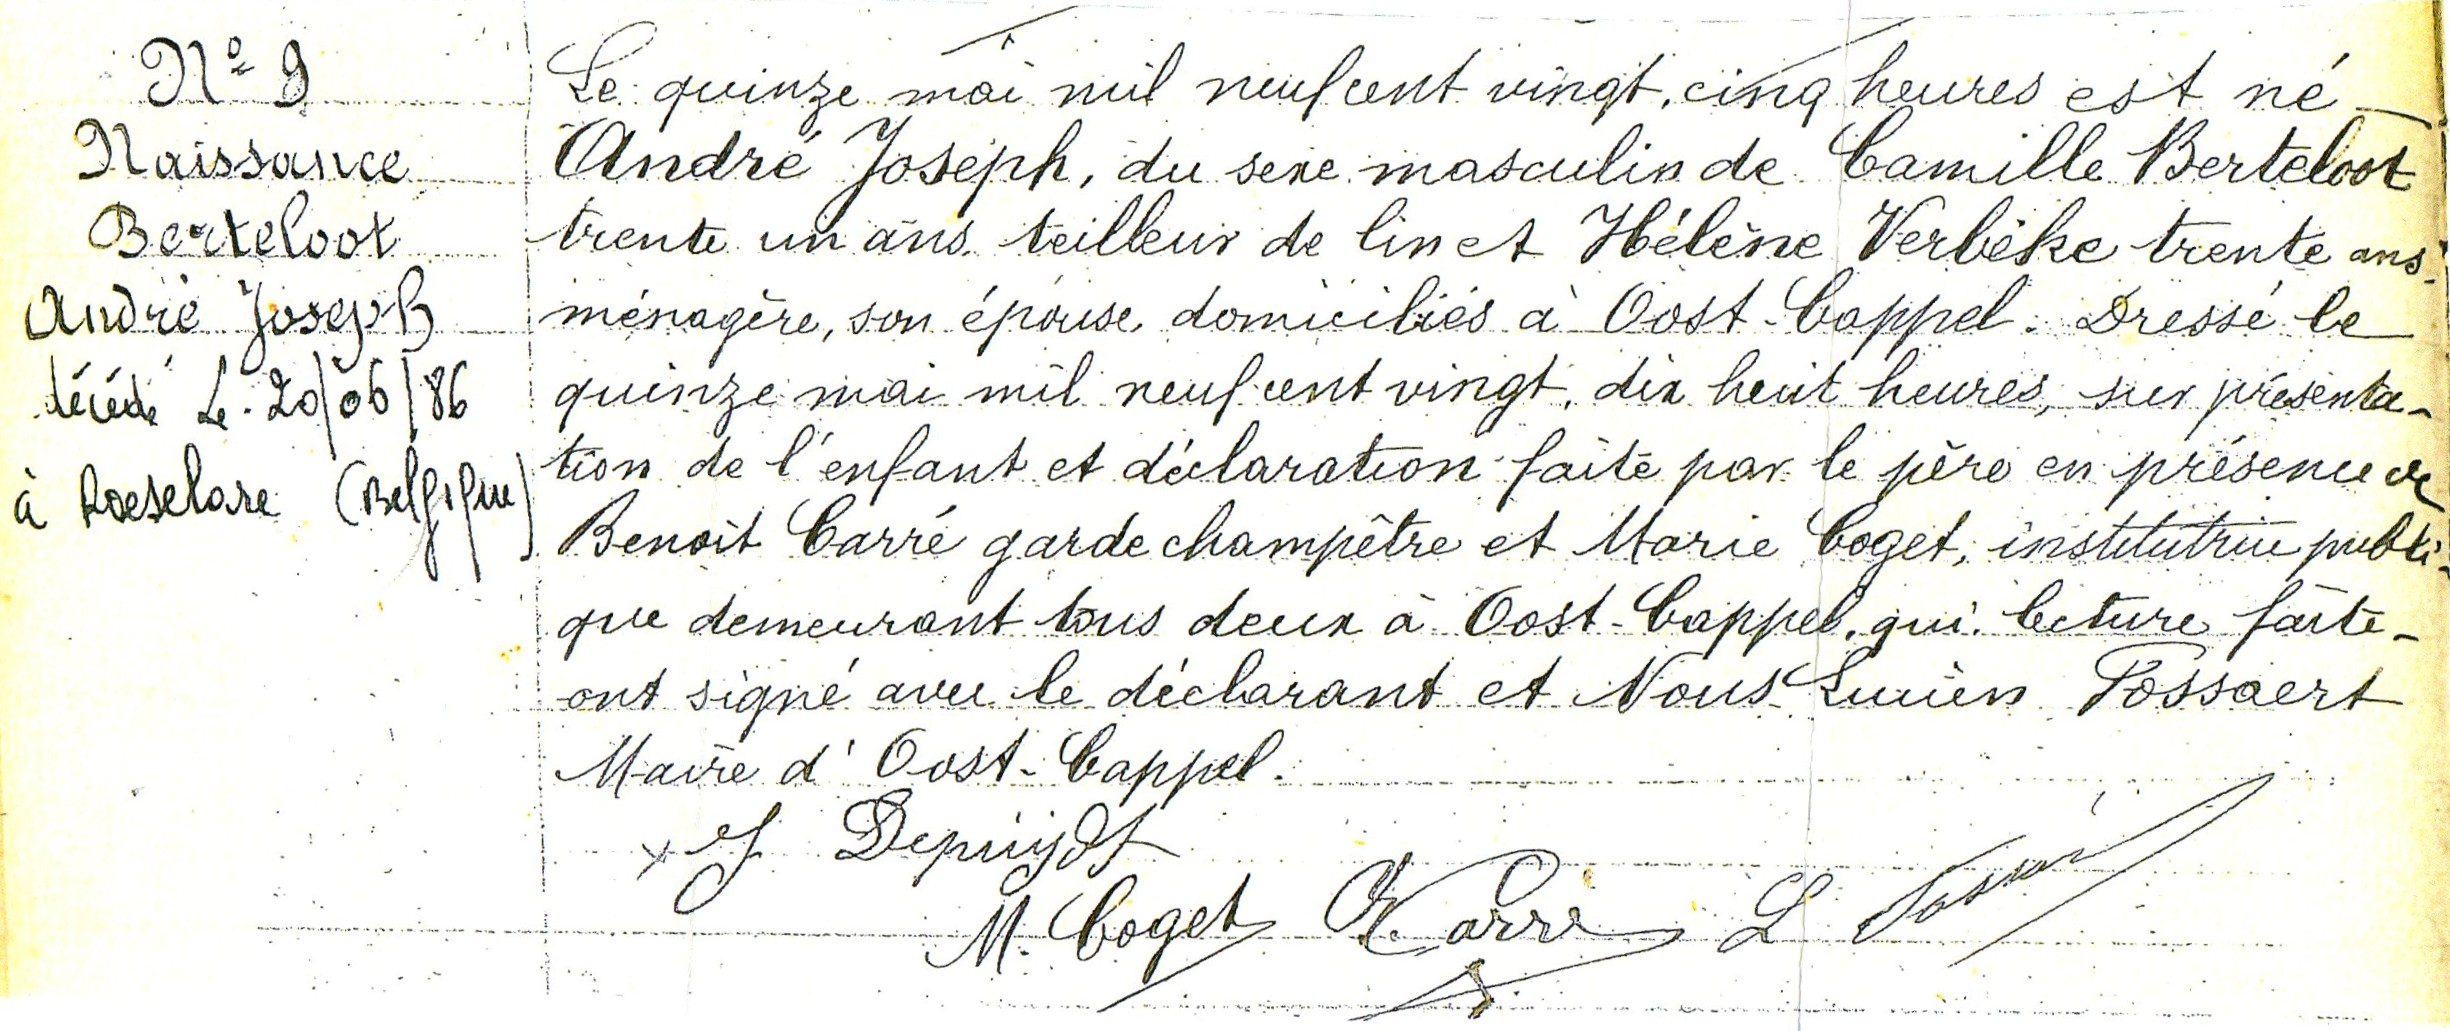 Nº 9
Naissance
Berteloot
André Joseph
décédé le 20/06/86
à Roeselare (Belgique)
Le quinze mai mil neuf cent vingt, cinq heures est né
André Joseph, du sexe masculin de Camille Berteloot
trente un ans teilleur de lin et Hélène Verbèke trente ans
ménagère, son épouse domiciliés à Oost-Cappel. Dressé le
quinze mai mil neuf cent vingt, dix huit heures, sur présenta-
tion de l'enfant et déclaration faite par le père en présence de
Benoit Carré garde champêtre et Marie Coget, institutrice publi-
que demeurant tous deux à Oost-Cappel, qui, lecture faite
ont signé avec le déclarant et Nous Lucien Fossaert
Maire d'Oost-Cappel.
x J. Depuydt
M. Coget Carré L